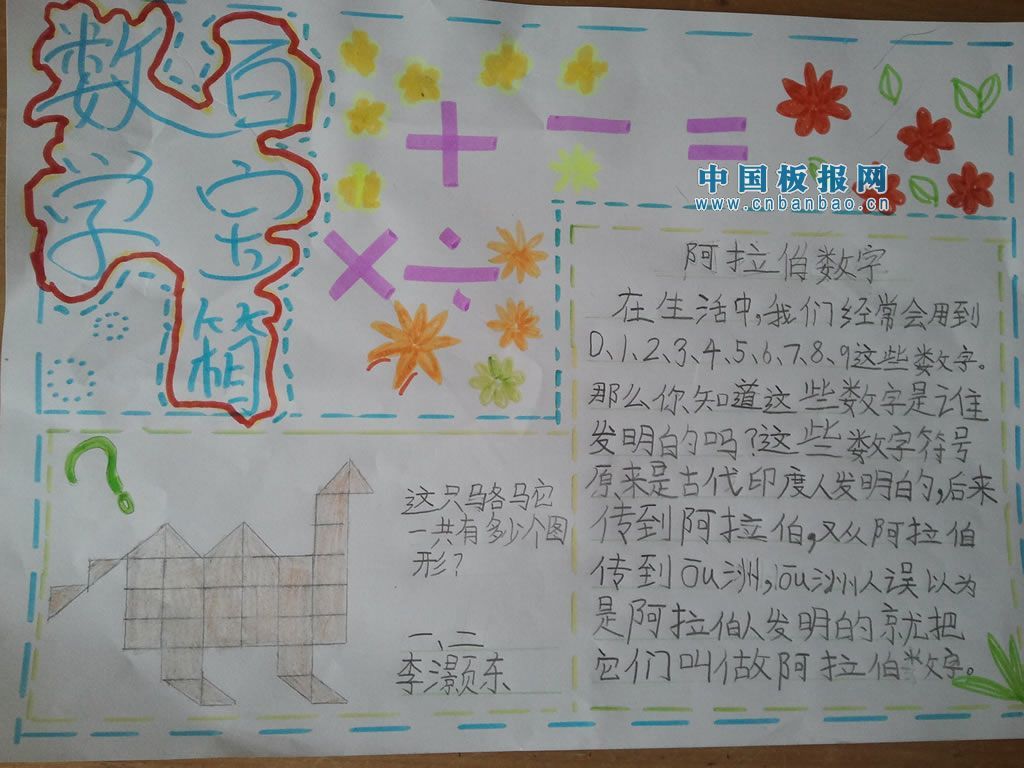 数学
百宝箱
+ − =
× ÷
中国板报网
www.cnbanbao.cn
阿拉伯数字
在生活中,我们经常会用到
0、1、2、3、4、5、6、7、8、9这些数字。
那么你知道这些数字是谁
发明的吗?这些数字符号
原来是古代印度人发明的,后来
传到阿拉伯,又从阿拉伯
传到ōu洲,ōu洲人误以为
是阿拉伯人发明的就把
它们叫做阿拉伯数字。
?
这只骆驼
一共有多少个图
形?
一、二
李灏东